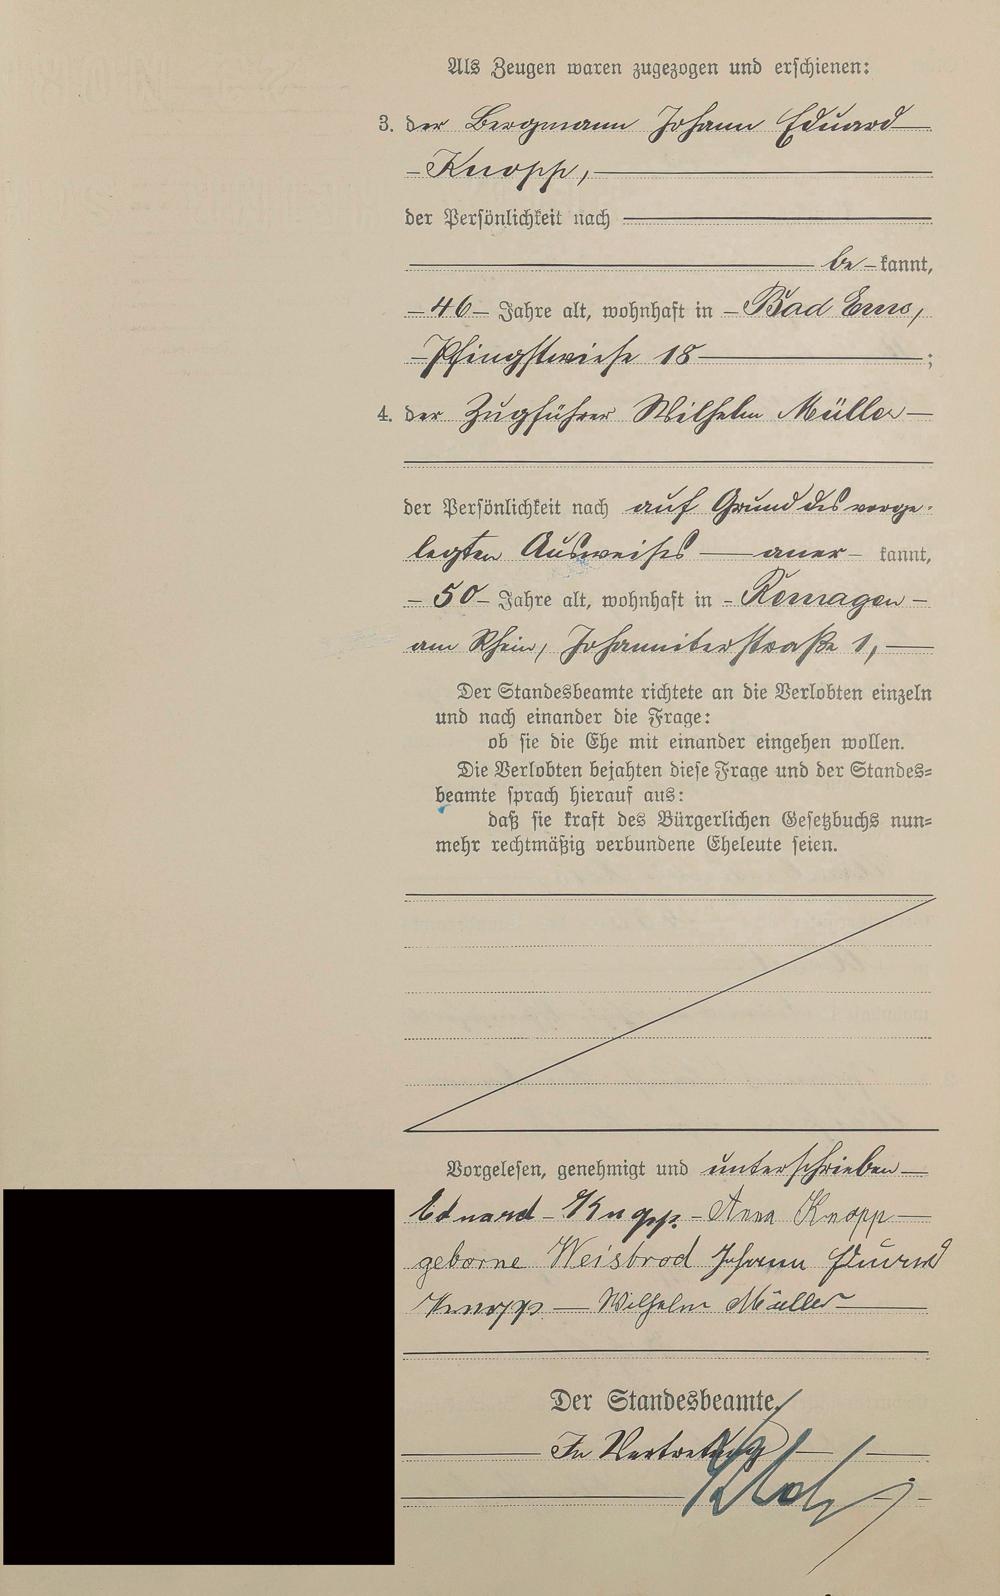 Als Zeugen waren zugezogen und erschienen:
3. der Bergmann Johann Eduard
Knopp,
der Persönlichkeit nach
be kannt,
46 Jahre alt, wohnhaft in Bad Ems,
Pfingstwiese 18 ;
4. der Zugführer Wilhelm Müller
der Persönlichkeit nach auf Grund des vorge-
legten Ausweises aner kannt,
50 Jahre alt, wohnhaft in Remagen
am Rhein, Johanniterstraße 1,
Der Standesbeamte richtete an die Verlobten einzeln
und nach einander die Frage:
ob sie die Ehe mit einander eingehen wollen.
Die Verlobten bejahten diese Frage und der Standes=
beamte sprach hierauf aus:
daß sie kraft des Bürgerlichen Gesetzbuchs nun=
mehr rechtmäßig verbundene Eheleute seien.
Vorgelesen, genehmigt und unterschrieben
Eduard Knopp. Anna Knopp
geborne Weisbrod Johann Eduard
Knopp Wilhelm Müller
Der Standesbeamte.
In Vertretung